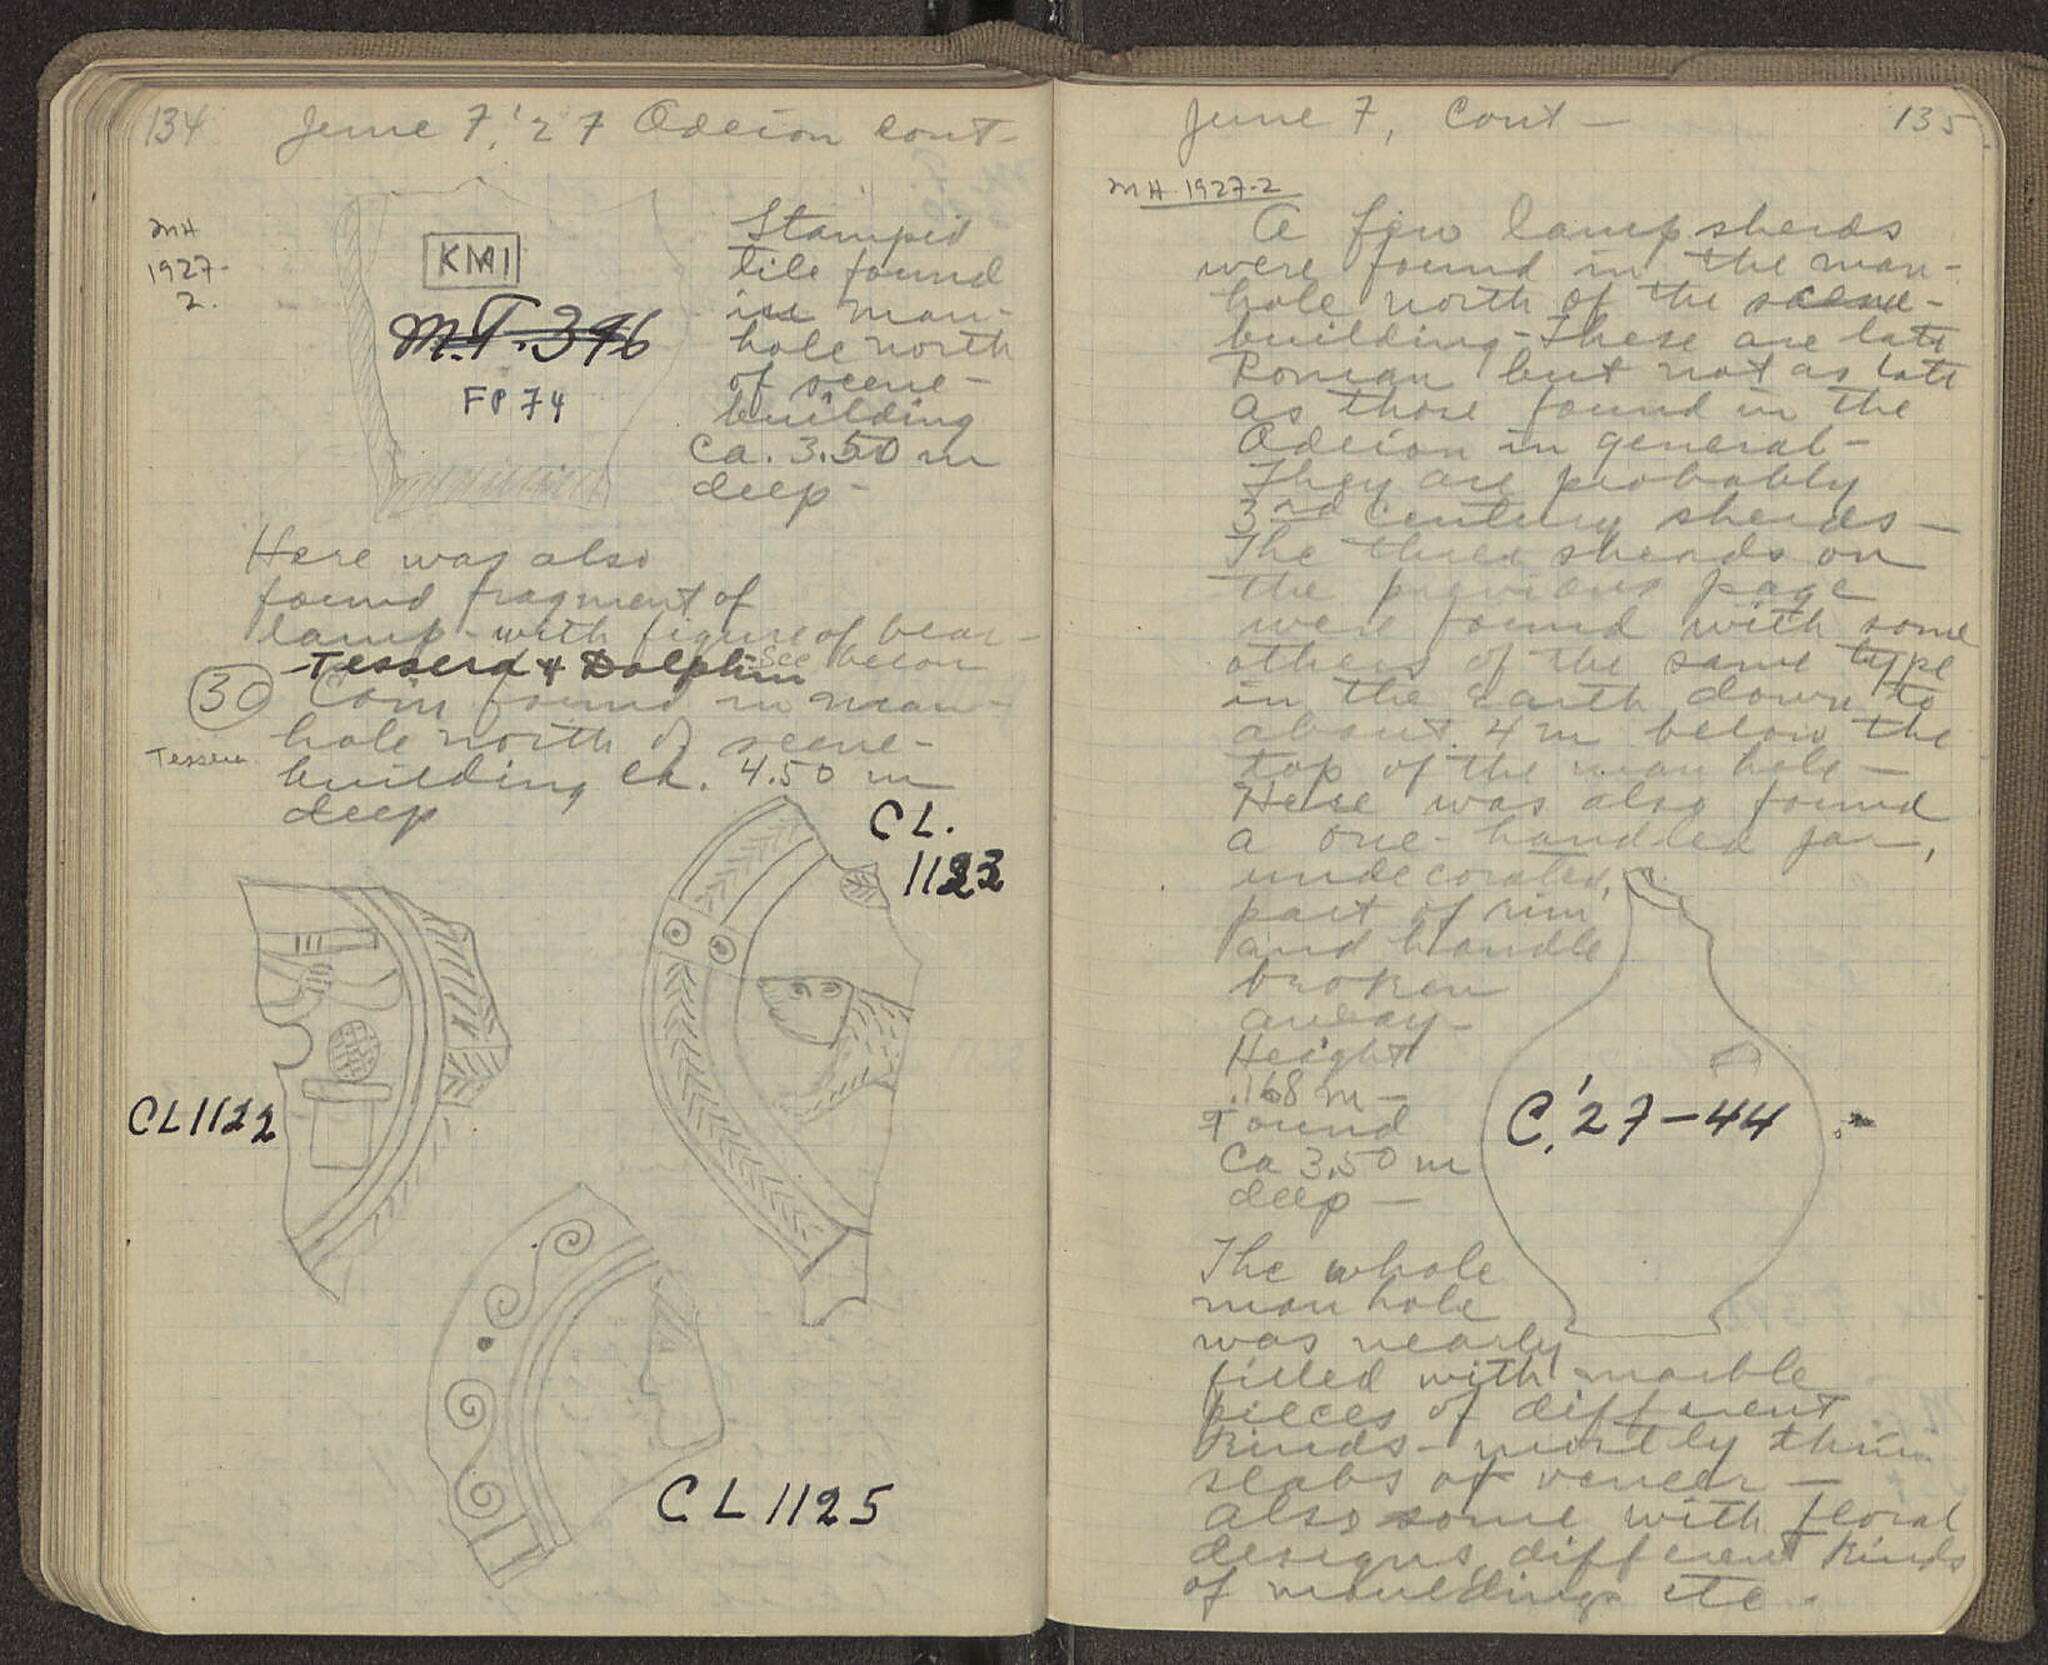 134 June 7, '27 Odeion Cont-
MH
1927-
2.
KMI
M.T. 396
FP 74
Stamped
tile found
in man-
hole north
of scene-
building
Ca. 3.50 m
deep-
Here was also
found fragment of
lamp - with figure of bear -
See below
Tessera & Dolphin
30 Coin found in man-
hole north of scene-
Tessera
building Ca. 4.50 m
deep
CL.
1123
CL 1122
CL 1125
June 7, Cont - 135
MH 1927-2
A few lamp sherds
were found in the man-
hole north of the scene-
building - These are late
Roman but not as late
as those found in the
Odeion in general -
They are probably
3rd century sherds -
The three sherds on
the previous page
were found with some
others of the same type
in the earth down to
about 4 m below the
top of the man hole -
Here was also found
a one-handled jar,
undecorated,
part of rim
and handle
broken
away -
Height
.168 m -
Found
Ca 3.50 m
deep -
C.'27-44
The whole
man hole
was nearly
filled with marble
pieces of different
kinds - mostly thin
slabs of veneer -
also some with floral
designs, different kinds
of mouldings etc.